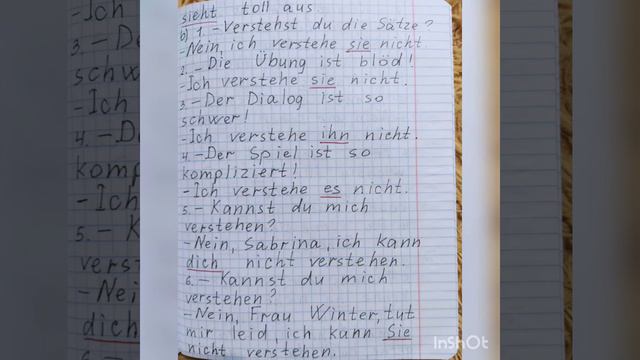 sieht toll aus.
b) 1. - Verstehst du die Sätze?
- Nein, ich verstehe sie nicht.
2. - Die Übung ist blöd!
- Ich verstehe sie nicht.
3. - Der Dialog ist so
schwer!
- Ich verstehe ihn nicht.
4. - Der Spiel ist so
kompliziert!
- Ich verstehe es nicht.
5. - Kannst du mich
verstehen?
- Nein, Sabrina, ich kann
dich nicht verstehen.
6. - Kannst du mich
verstehen?
- Nein, Frau Winter, tut
mir leid, ich kann Sie
nicht verstehen.
InShOt